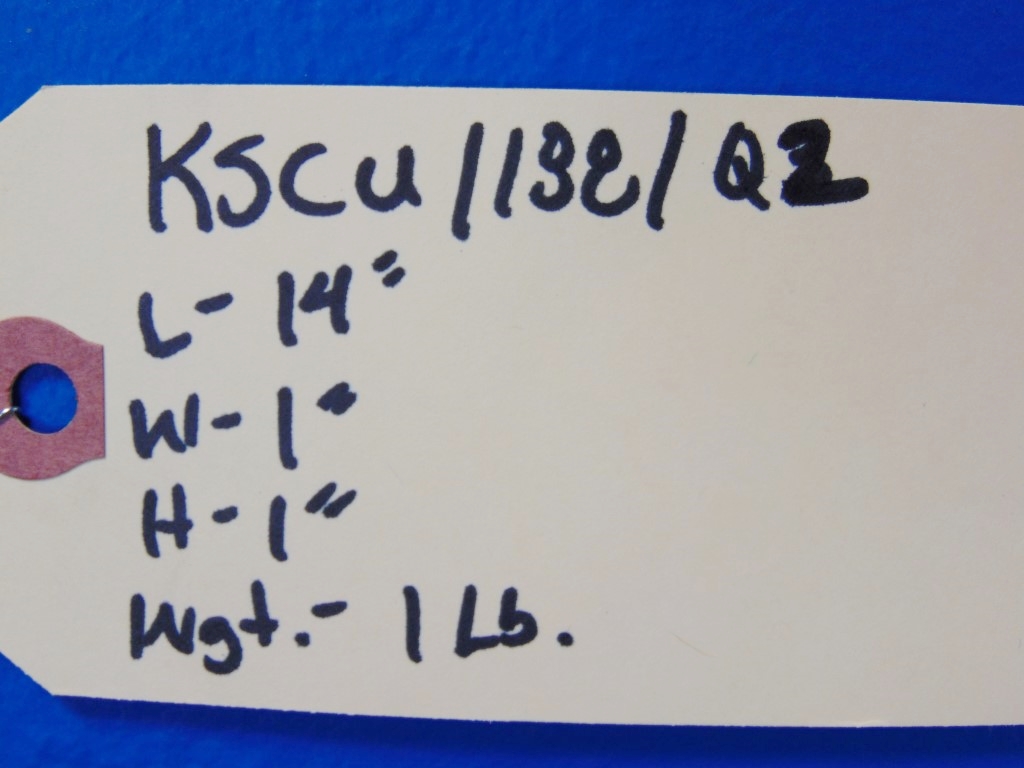 KSCU/1132/Q2
L- 14"
W- 1"
H- 1"
Wgt.- 1 Lb.